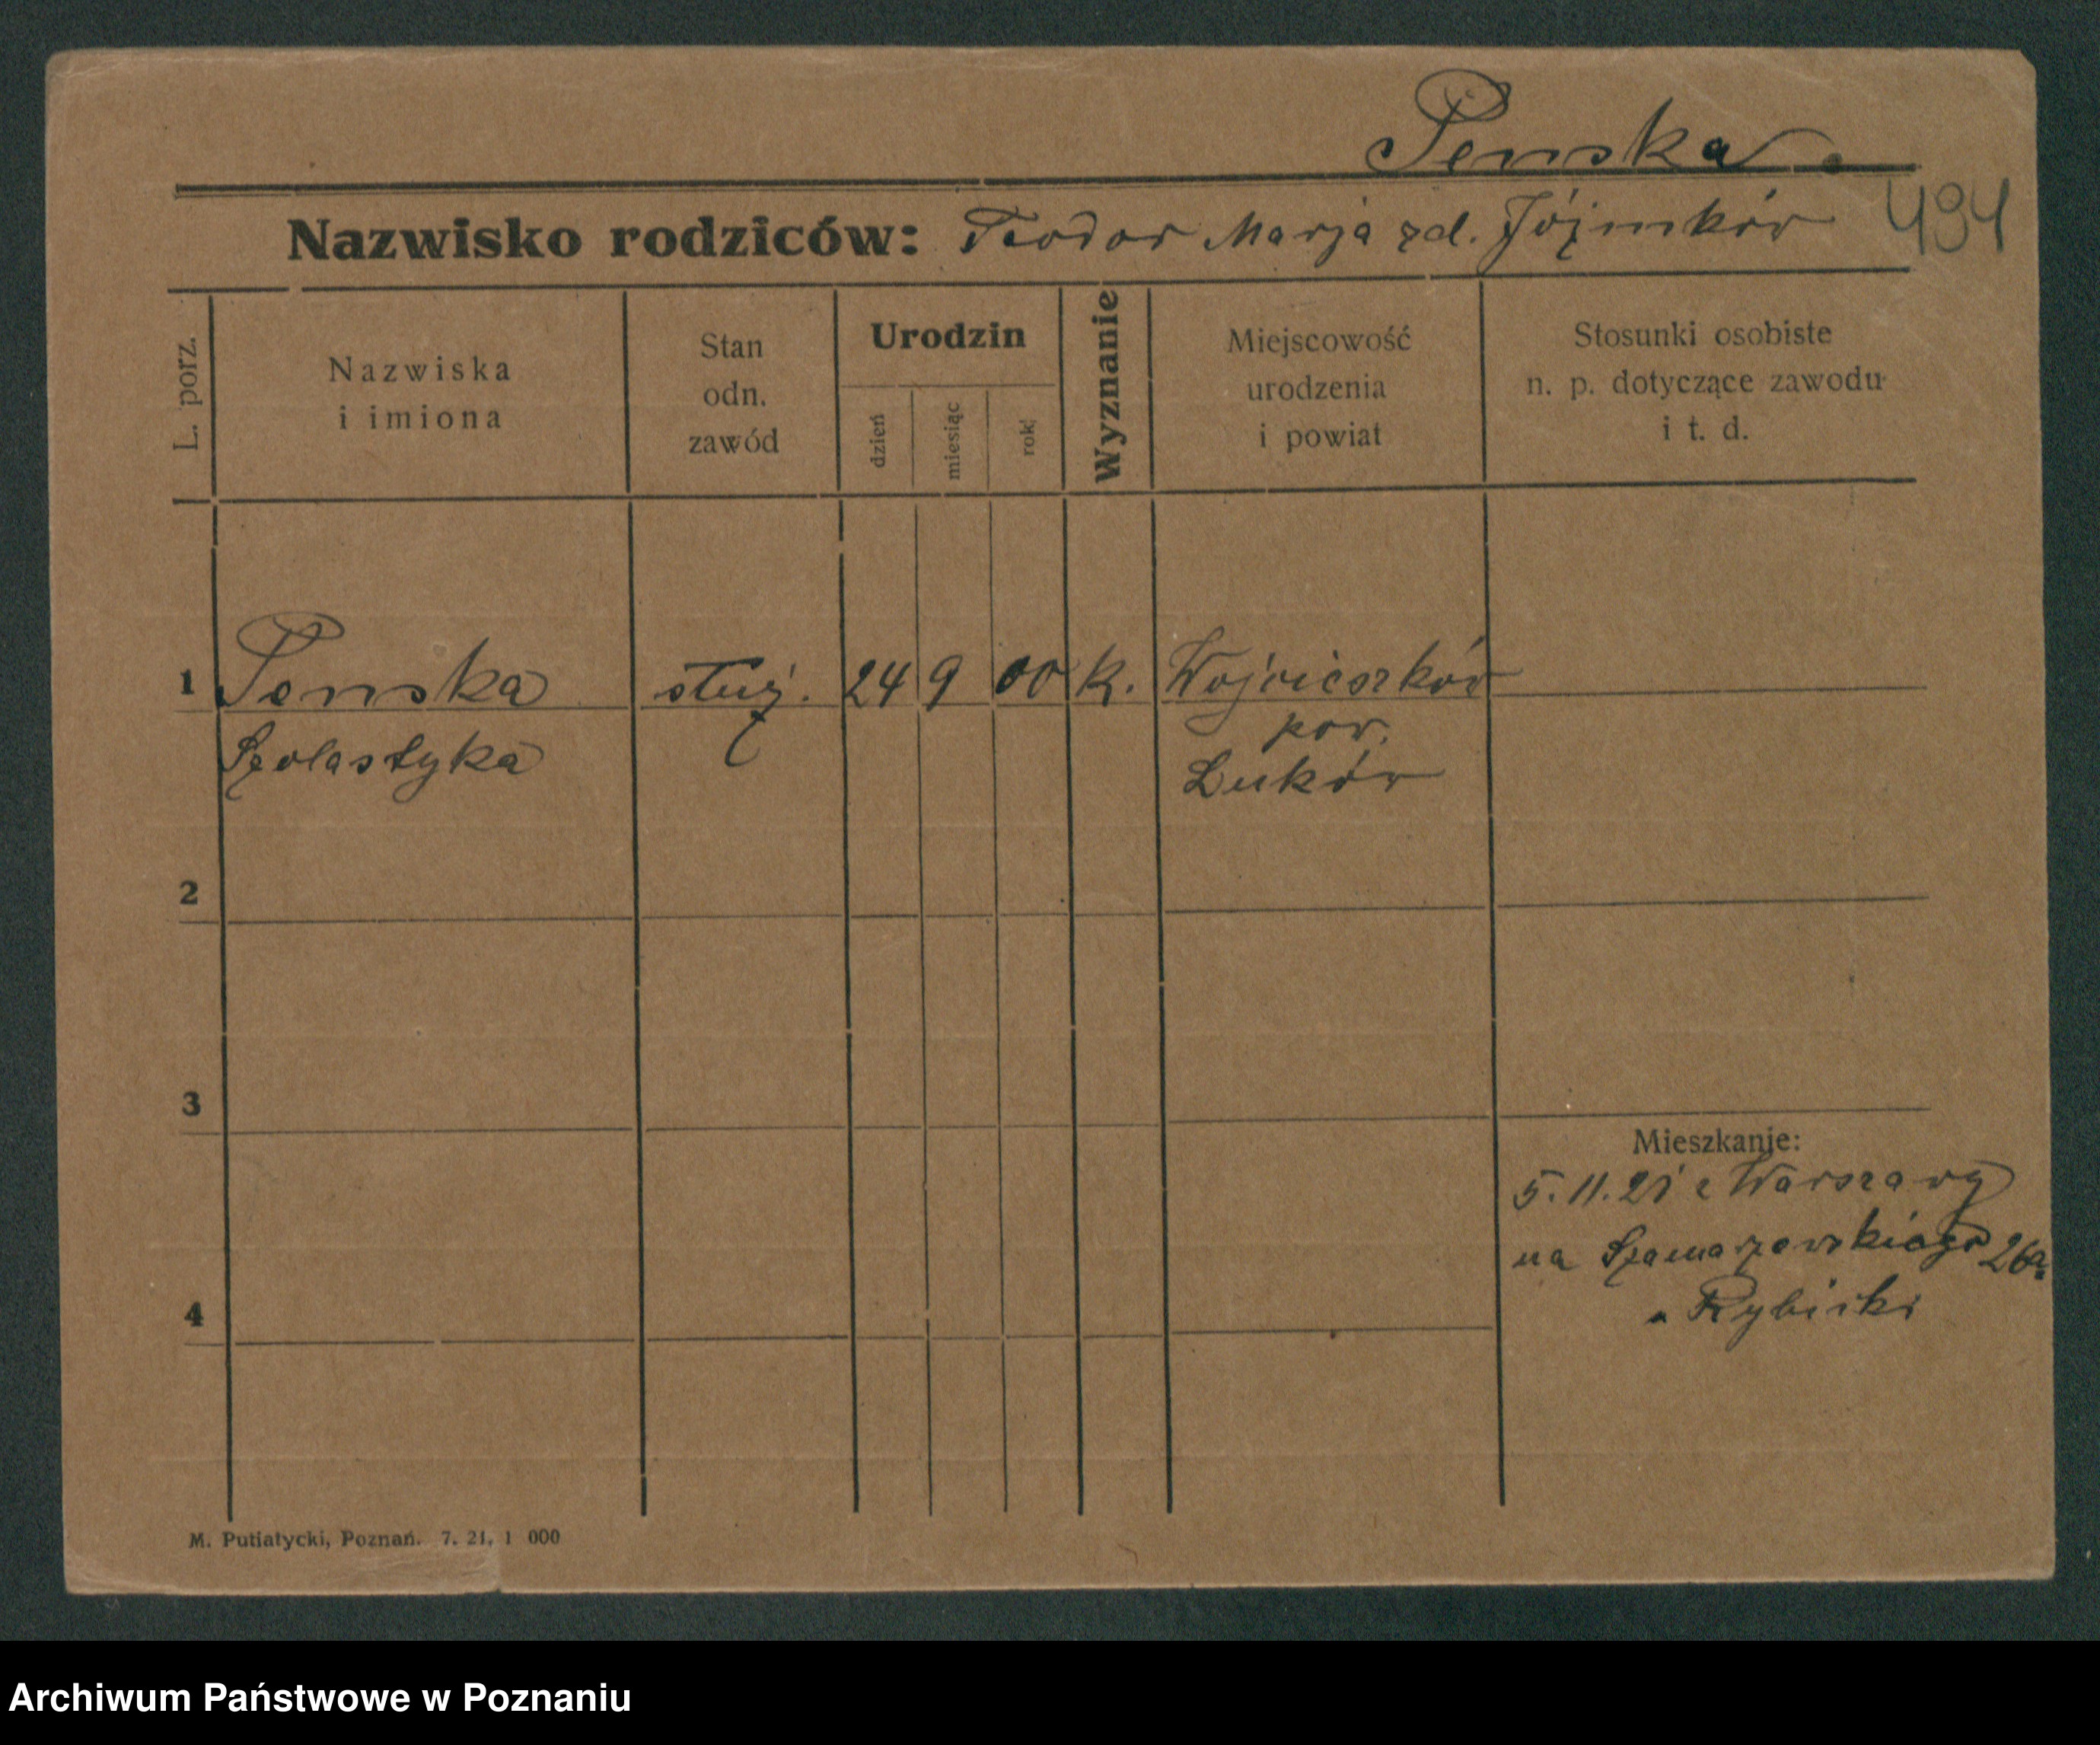 Penska
Nazwisko rodziców: Teodor Marja zd. Józinków
494
L. porz.
Nazwiska
i imiona
Stan
odn.
zawód
Urodzin
dzień
miesiąc
rok
Wyznanie
Miejscowość
urodzenia
i powiat
Stosunki osobiste
n. p. dotyczące zawodu
i t. d.
1 Penska służ. 24 9 00 K. Wojcieszków
pow.
Szolastyka Łuków
2
3
Mieszkanie:
5. 11. 21 z Warszawy
na Szamarzewskiego 26a
4
u Rybicki
M. Putiatycki, Poznań. 7. 21, 1 000
Archiwum Państwowe w Poznaniu